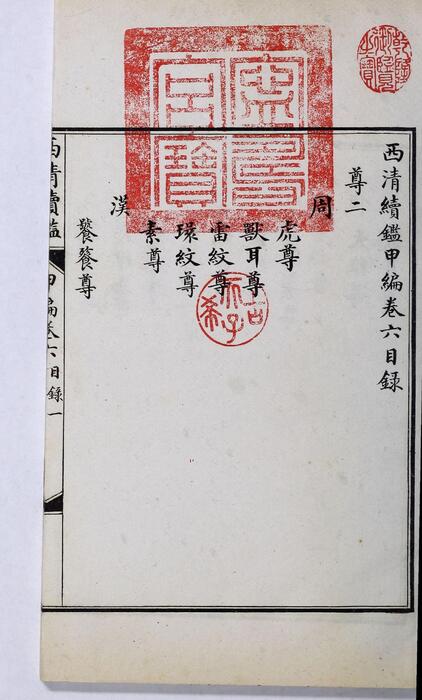 乾隆御覽之寶
寧壽宮寶
西清續鑑甲編卷六目錄
尊二
周
虎尊
獸耳尊
雷紋尊
環紋尊
素尊
漢
饕餮尊
古希天子
西清續鑑 甲編卷六 目錄 一